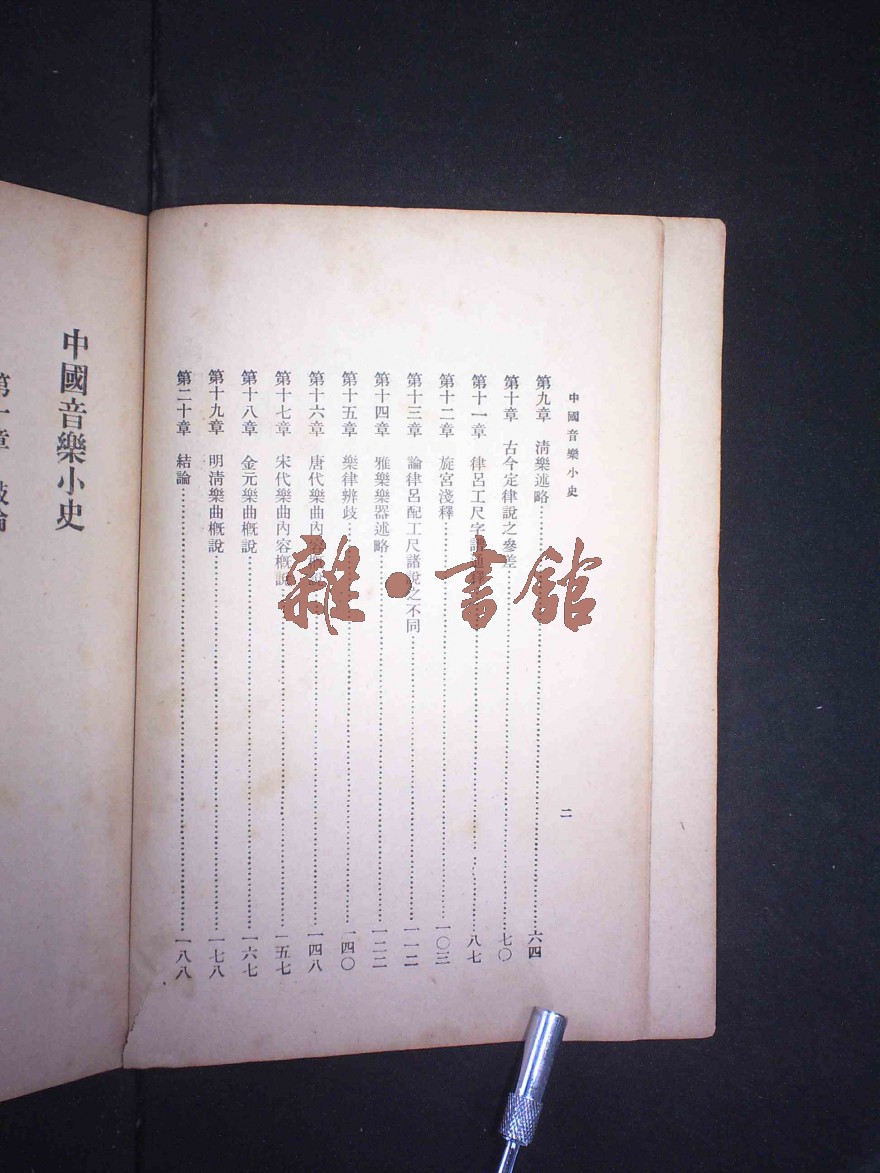 中國音樂小史
二
第九章 淸樂述略 六四
第十章 古今定律說之參差 七〇
第十一章 律呂工尺字譜 八七
第十二章 旋宮淺釋 一〇三
第十三章 論律呂配工尺諸說之不同 一一二
第十四章 雅樂樂器述略 一二二
第十五章 樂律辨歧 一四〇
第十六章 唐代樂曲內容概說 一四八
第十七章 宋代樂曲內容概說 一五七
第十八章 金元樂曲概說 一六七
第十九章 明淸樂曲概說 一七八
第二十章 結論 一八八
中國音樂小史
第一章
雜·書館